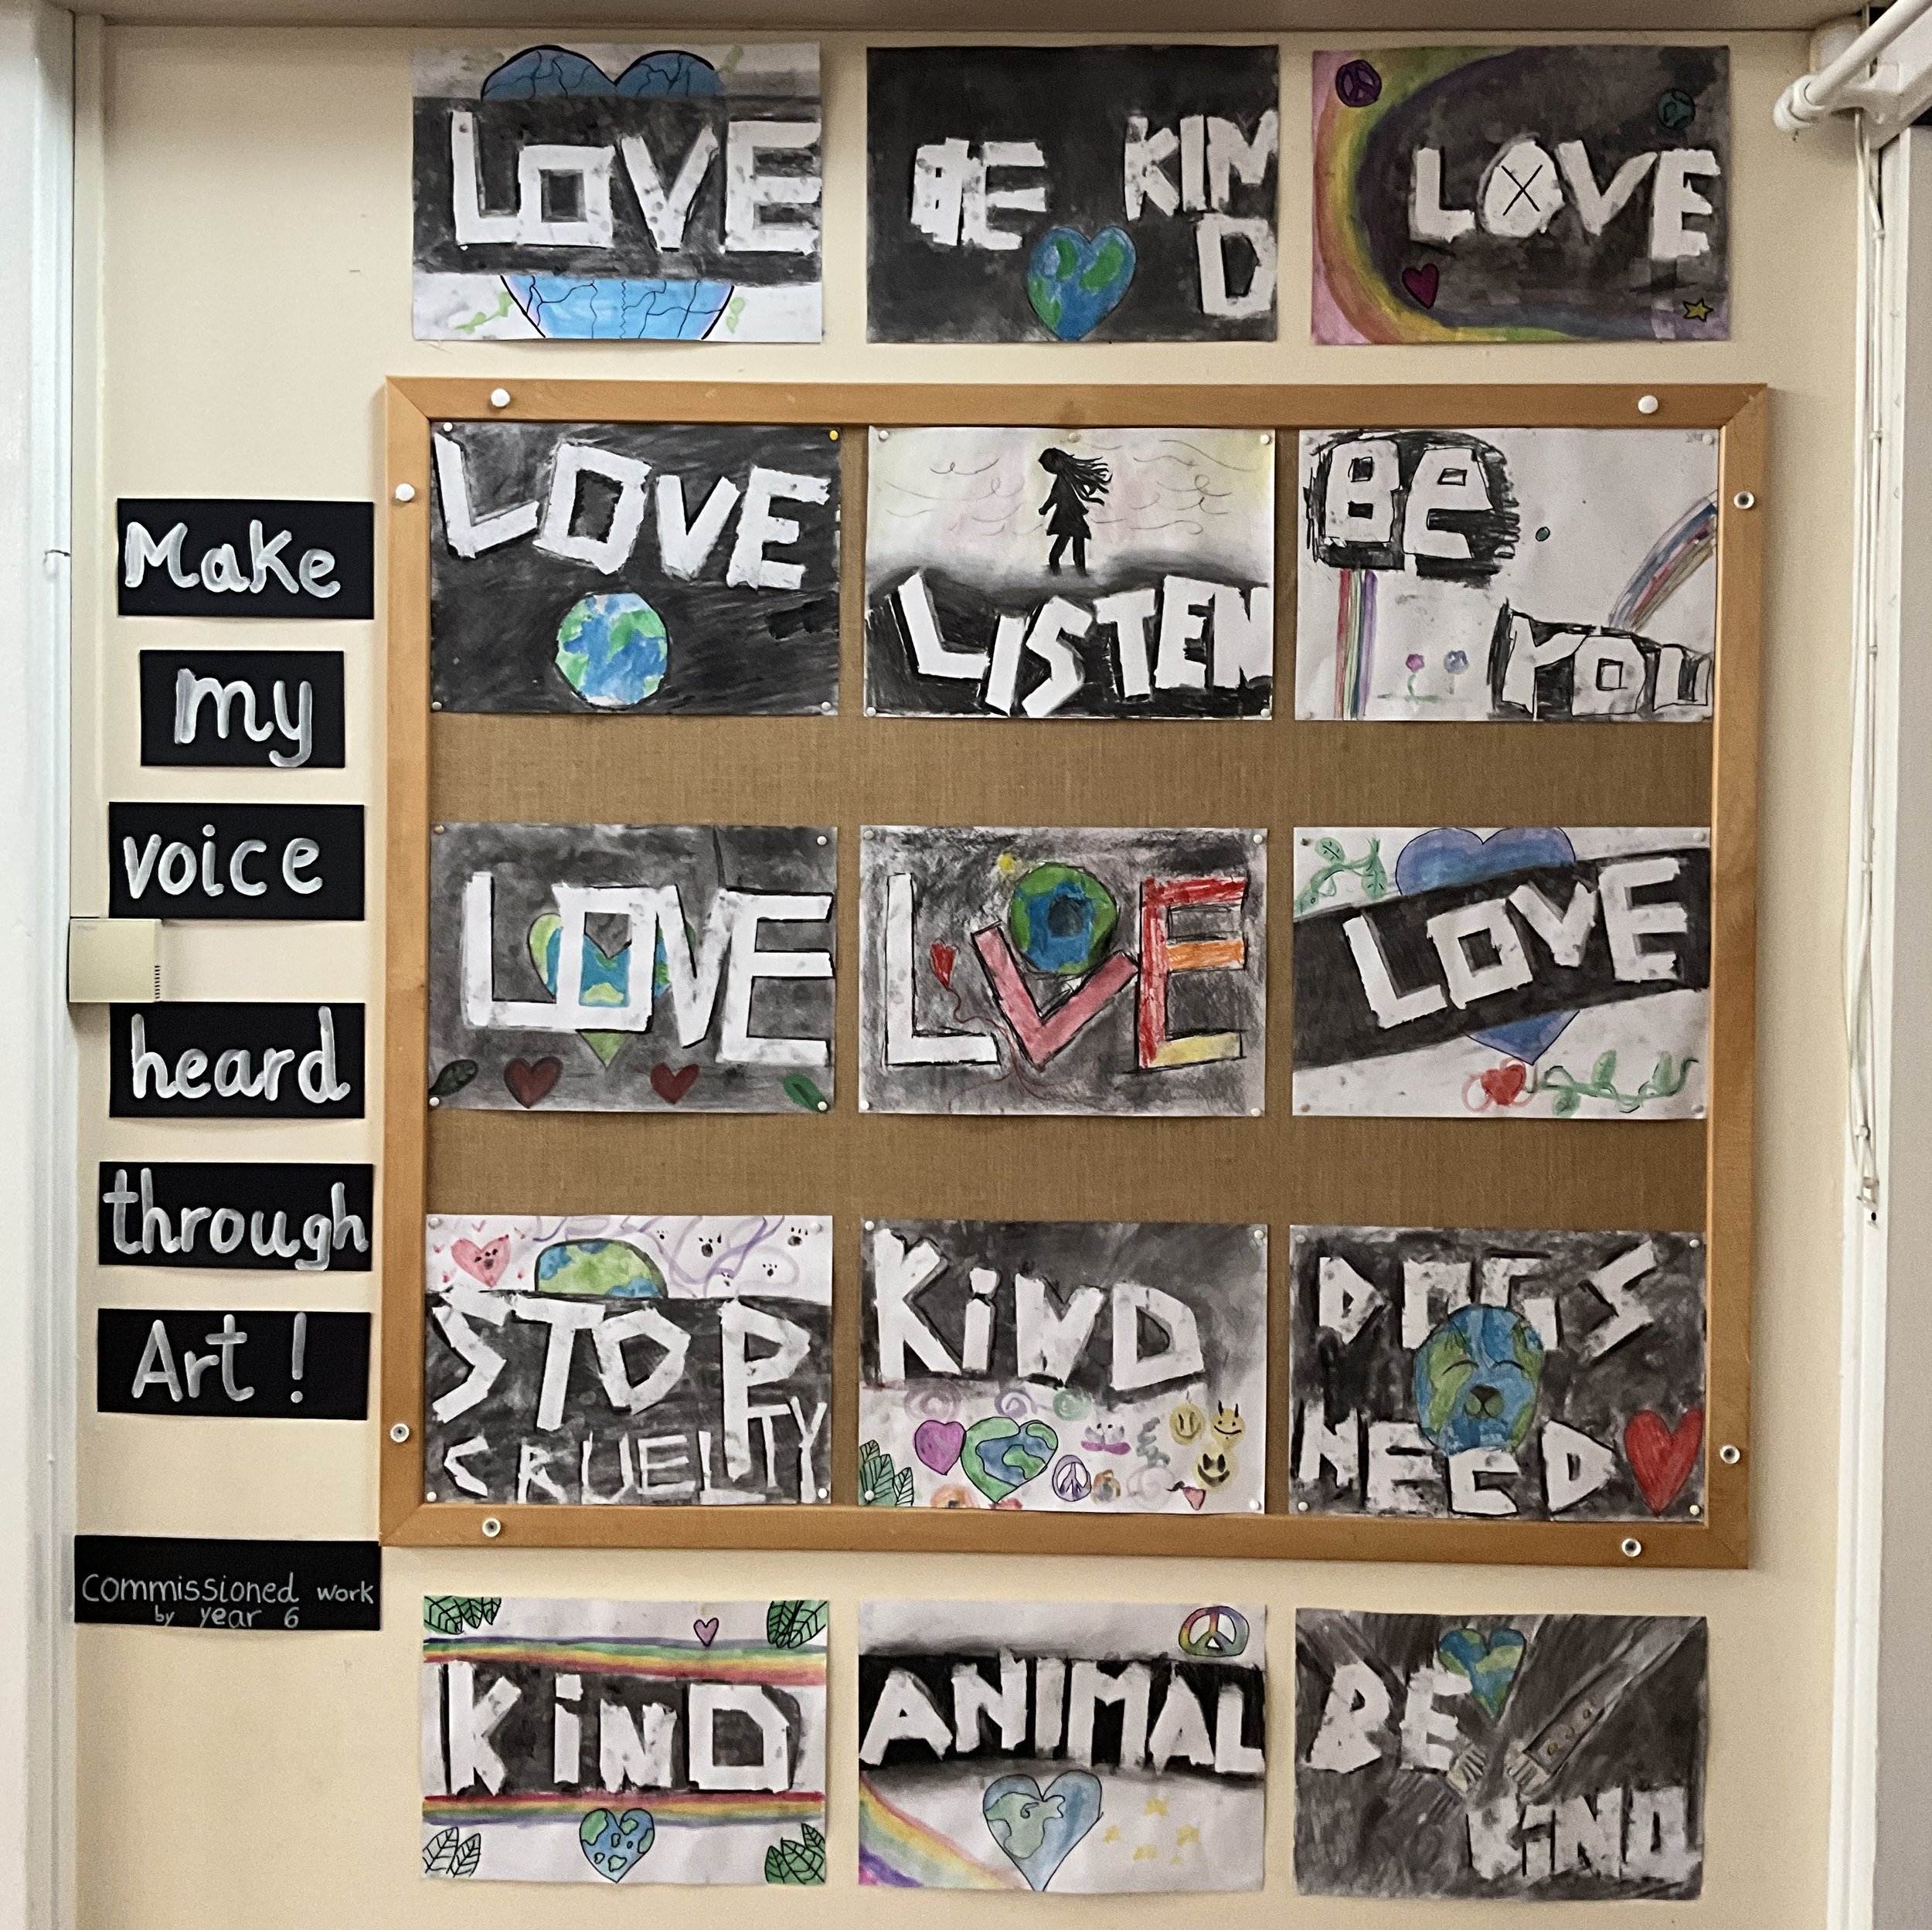 Make
my
voice
heard
through
Art!
Commissioned work
by year 6
LOVE
BE KIN
D
LOVE
LOVE
LISTEN
Be
YOU
LOVE
LOVE
LOVE
STOP
CRUELTY
KiND
DOGS
NEED
KiND
ANIMAL
BE
KiND